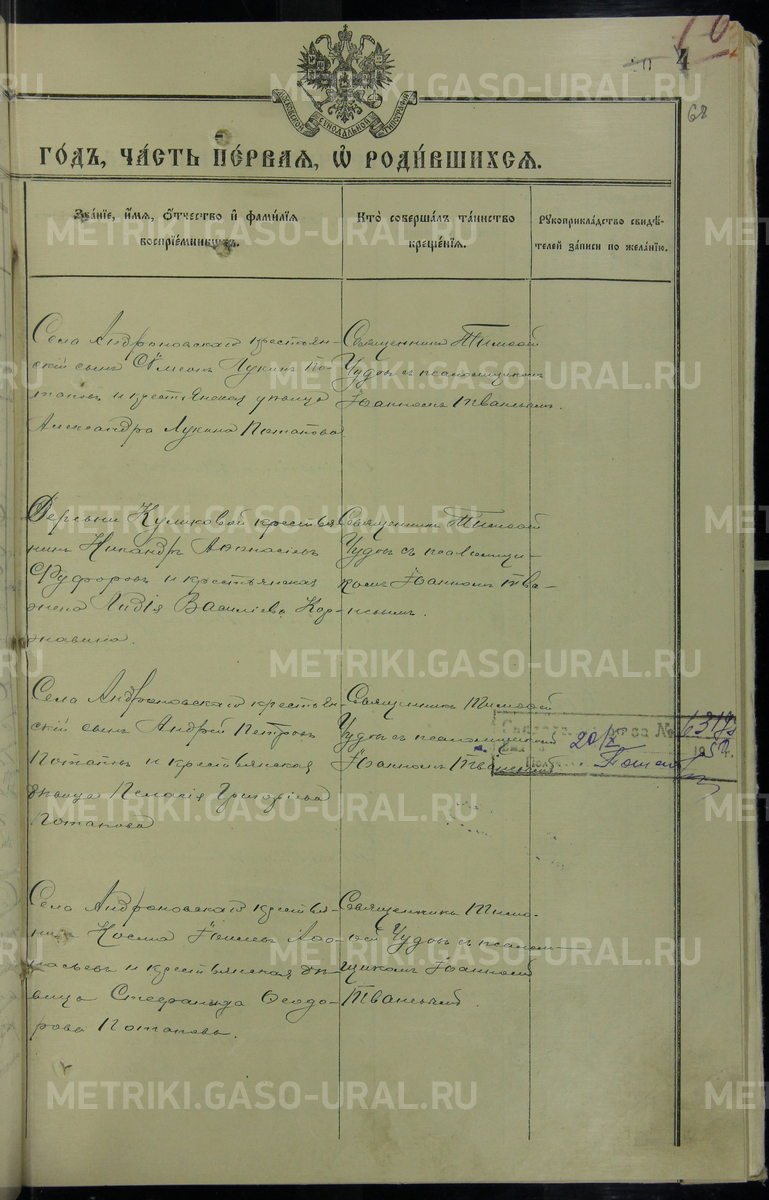 4
68
МОСКОВСКОЙ СѴНОДАЛЬНОЙ ТИПОГРАФІИ
ГО́ДЪ, ЧА́СТЬ ПЕ́РВАЯ, Ѡ РОДИ́ВШИХСЯ.
Зва́нїе, и́мя, о́тчество и҆ фами́лїя
воспрїе́мниковъ.
Кто̀ соверша́лъ та́инство
креще́нїя.
Рꙋкоприкла́дство свидѣ́-
телей за́писи по жела́нїю.
Села Андроновскаго крестьян-
скій сынъ Сѵмеонъ Лукинъ По-
таповъ и крестьянская дѣвица
Александра Лукина Потапова
Священникъ Тимоѳей
Чудовъ съ псаломщикомъ
Іоанномъ
Деревни Куликовой крестья
нинъ Никандръ Аѳанасіевъ
и крестьянская
жена Лидія Василіева Кор-
жавина.
Священникъ Тимоѳей
Чудовъ съ псаломщи-
комъ Іоанномъ
Села Андроновскаго крестьян-
скій сынъ Андрей Петровъ
Потаповъ и крестьянская
дѣвица Пелагія Григоріева
Потапова
Священникъ Тимоѳей
Чудовъ съ псаломщикомъ
Іоанномъ
№
20/X
195
Села Андроновскаго крестья-
нинъ Косма
и крестьянская дѣ-
вица Стефанида Ѳеодо-
рова Потапова.
Священникъ Тимо-
ѳей Чудовъ съ псалом-
щикомъ Іоанномъ
METRIKI.GASO-URAL.RU